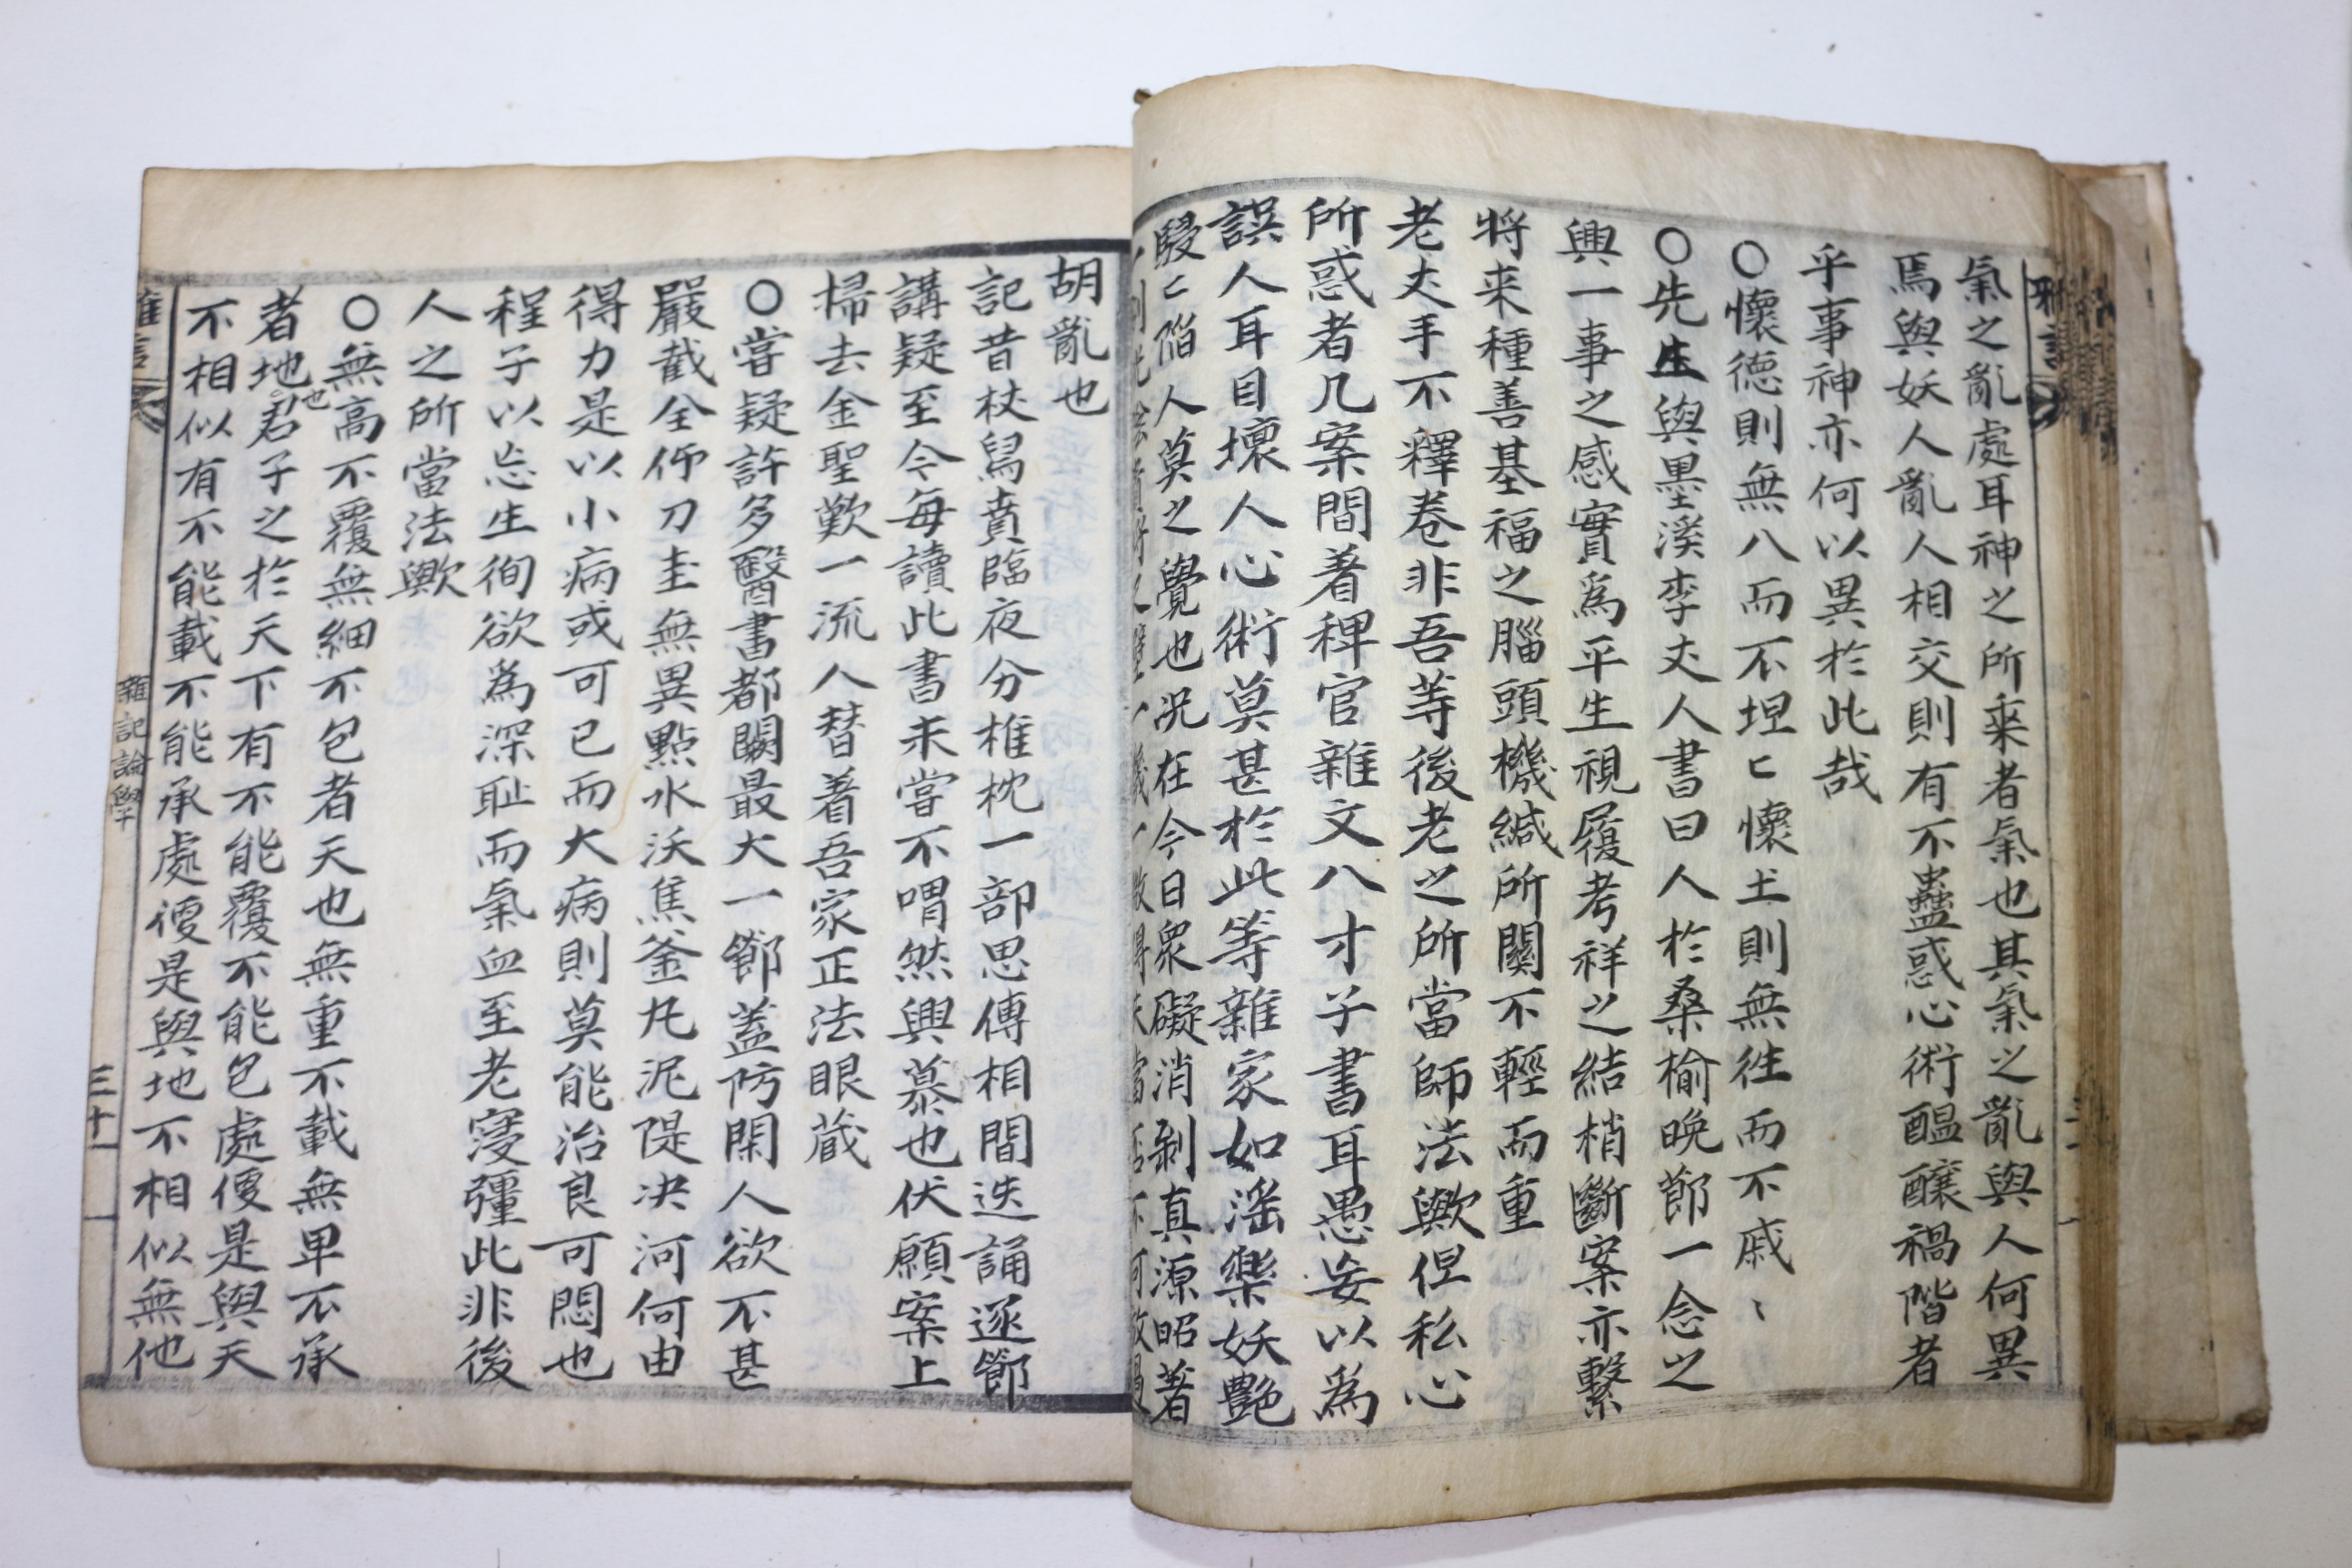 氣之亂處耳神之所乘者氣也其氣之亂與人何異
焉與妖人亂人相交則有不蠱惑心術醞釀禍階者
乎事神亦何以異於此哉
○懷德則無入而不坦〻懷土則無往而不戚〻
○先生與墨溪李丈人書曰人於桑楡晚節一念之
興一事之感實爲平生視履考祥之結梢斷案亦繫
將来種善基福之腦頭機緘所關不輕而重
老丈手不釋卷非吾等後老之所當師法歟但私心
所惑者几案間著稗官雜文八才子書耳愚妄以爲
誤人耳目壞人心術莫甚於此等雜家如滛樂妖艶
駸〻陷人莫之覺也况在今日衆礙消剝真源昭著
胡亂也
記昔杖舄賁臨夜分椎枕一部思傳相間迭誦逐節
講疑至今每讀此書未嘗不喟然興慕也伏願案上
掃去金聖歎一流人替著吾家正法眼蔵
○嘗疑許多醫書都闕最大一節蓋防閑人欲不甚
嚴截全仰刀圭無異點水沃焦釜丸泥隄决河何由
得力是以小病或可已而大病則莫能治良可悶也
程子以忘生徇欲爲深耻而氣血至老寖彊此非後
人之所當法歟
○無高不覆無細不包者天也無重不載無卑不承
者地也君子之於天下有不能覆不能包處便是與天
不相似有不能載不能承處便是與地不相似無他
雜言
雜記論學
三十一